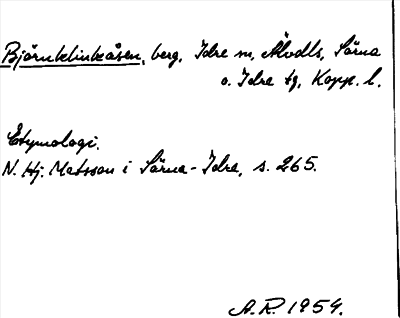 Björnklinkåsen, berg, Idre sn, Älvdls, Särna
o. Idre tg, Kopp. l.
Etymologi.
N. Hj. Matsson i Särna-Idre, s. 265.
A.R. 1954.